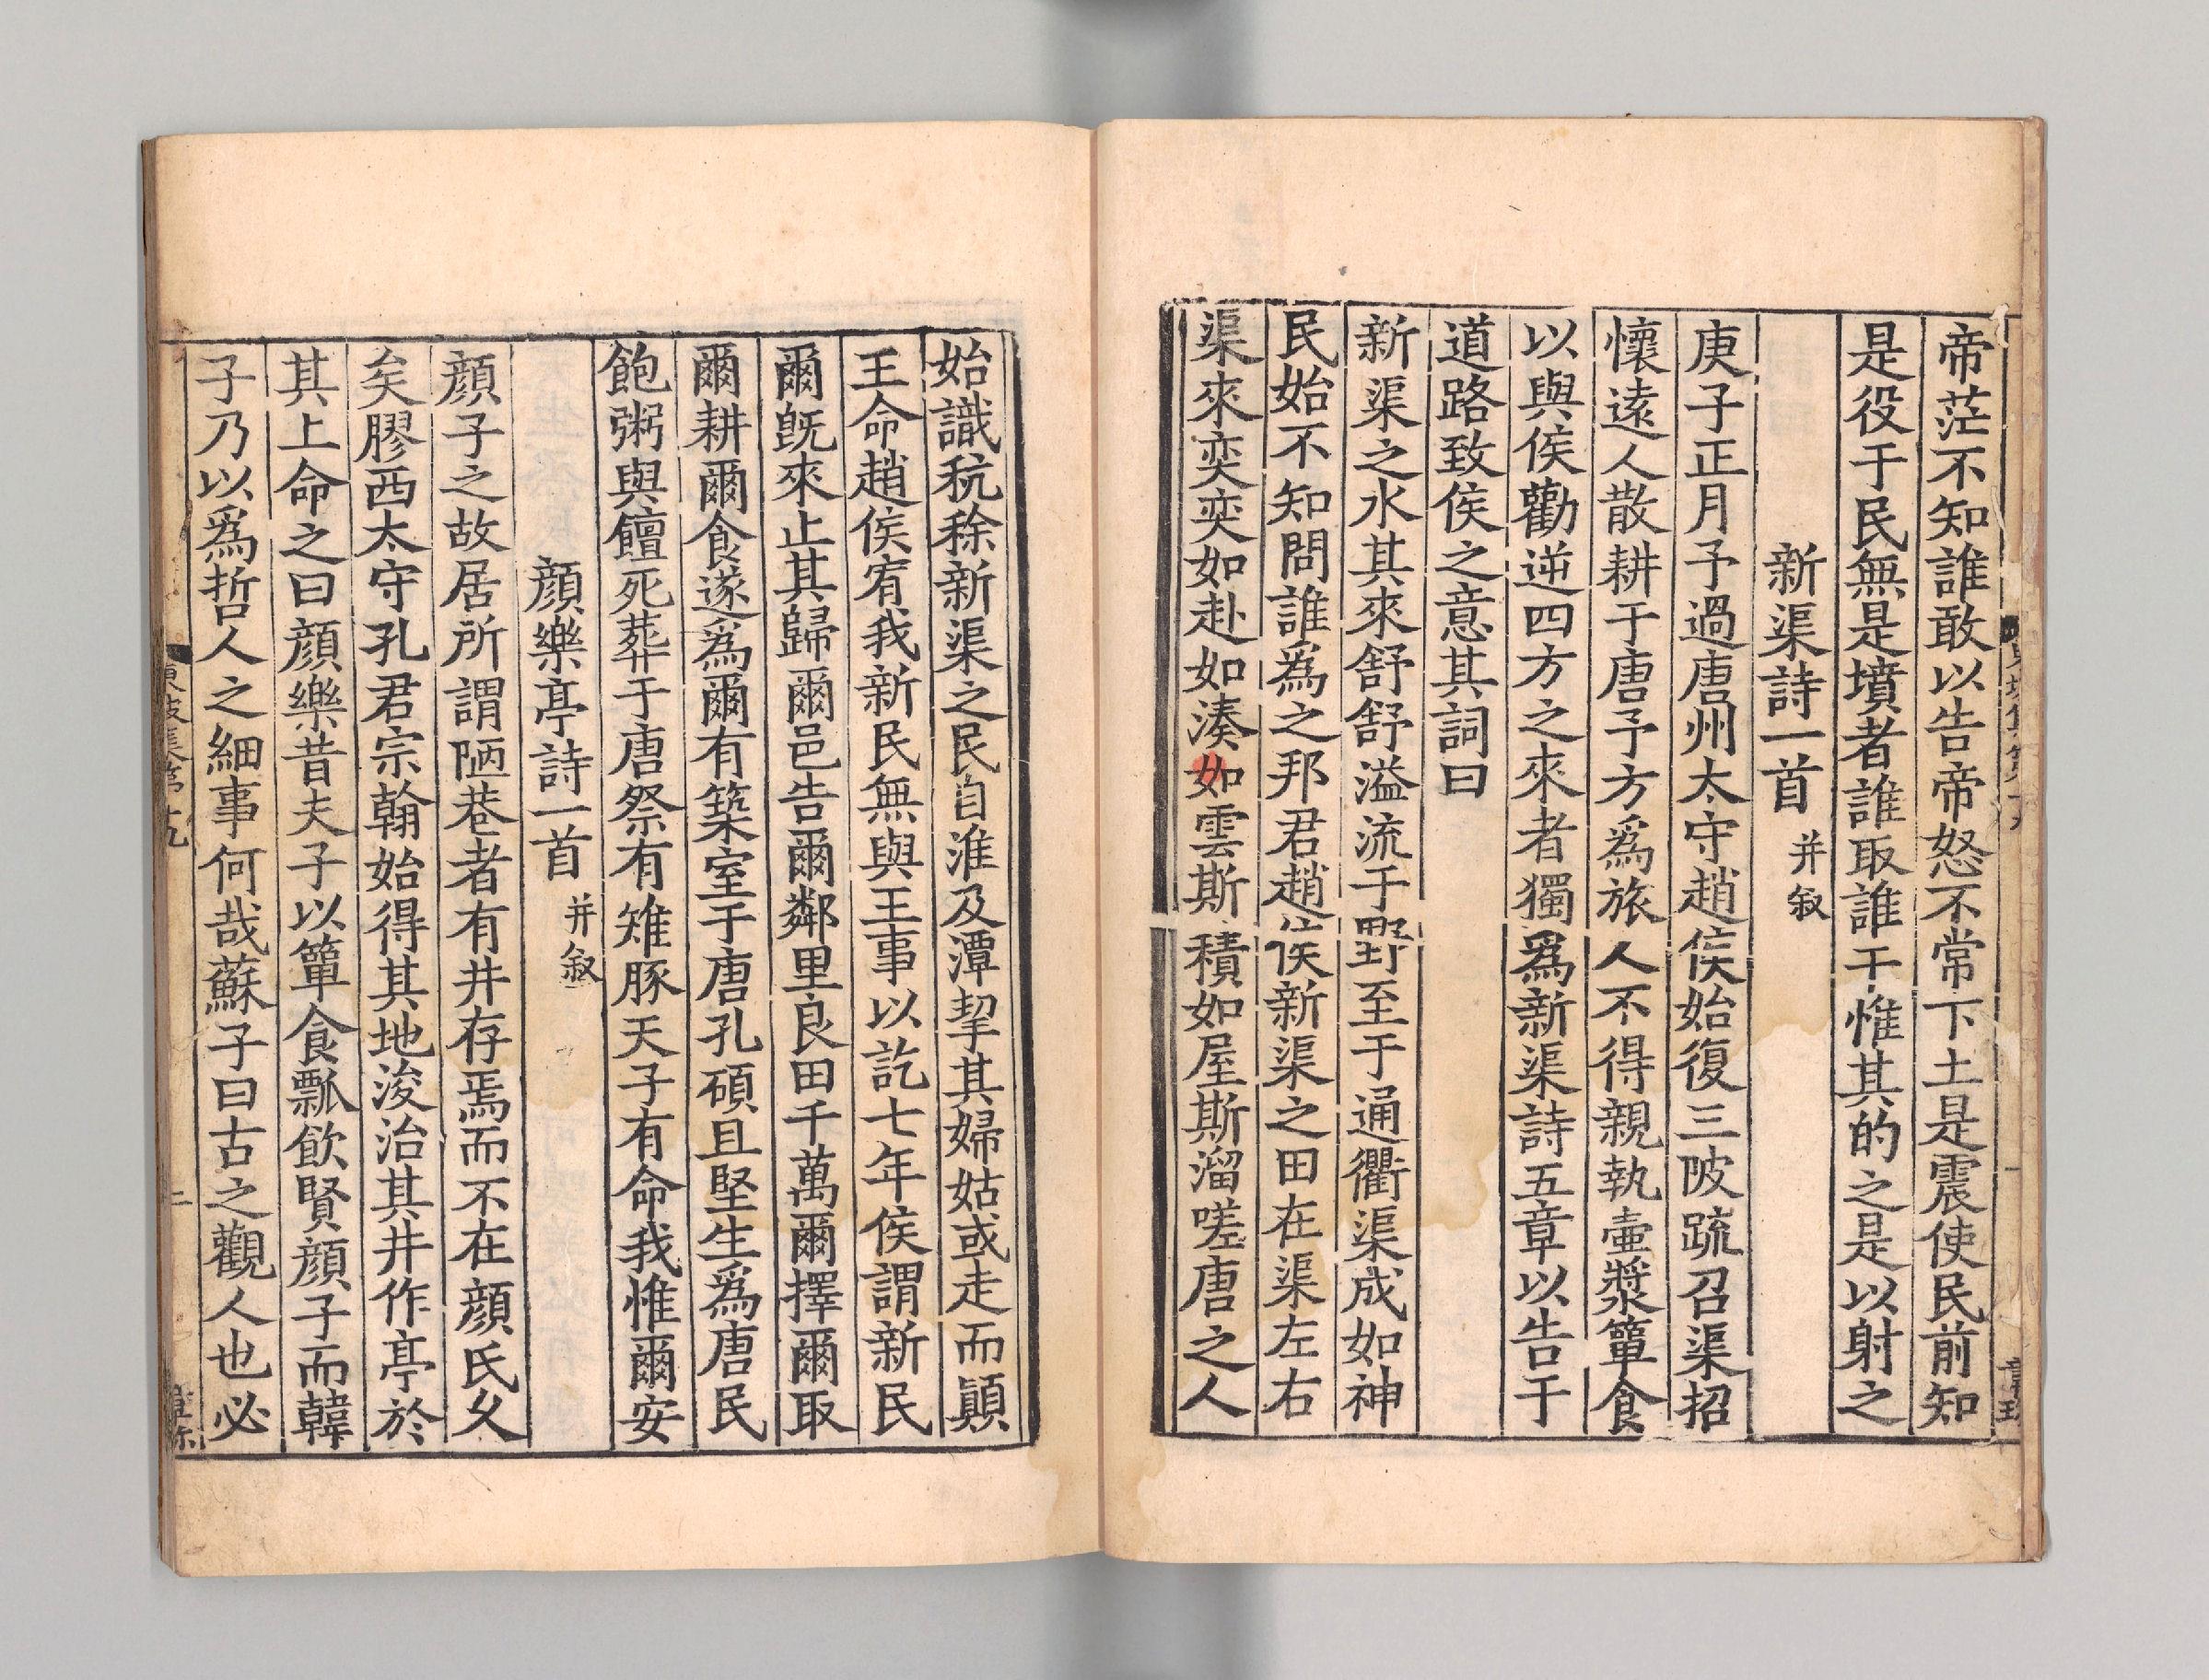 帝茫不知誰敢以告帝怒不常下土是震使民前知
是役于民無是墳者誰取誰干惟其的之是以射之
新渠詩一首 并叙
庚子正月予過唐州太守趙侯始復三陂疏召渠招
懷遠人散耕于唐予方爲旅人不得親執壷漿簞食
以與侯勸逆四方之來者獨爲新渠詩五章以告于
道路致侯之意其詞曰
新渠之水其來舒舒溢流于野至于通衢渠成如神
民始不知問誰爲之邦君趙侯新渠之田在渠左右
渠來奕奕如赴如湊如雲斯積如屋斯溜嗟唐之人
始識秔稌新渠之民自淮及潭挈其婦姑或走而顚
王命趙侯宥我新民無與王事以訖七年侯謂新民
爾旣來止其歸爾邑告爾鄰里良田千萬爾擇爾取
爾耕爾食遂爲爾有築室于唐孔碩且堅生爲唐民
飽粥與饘死葬于唐祭有雉豚天子有命我惟爾安
顔樂亭詩一首 并叙
顔子之故居所謂陋巷者有井存焉而不在顔氏久
矣膠西太守孔君宗翰始得其地浚治其井作亭於
其上命之曰顔樂昔夫子以簞食瓢飲賢顔子而韓
子乃以爲哲人之細事何哉蘇子曰古之觀人也必
東坡集第十九
二